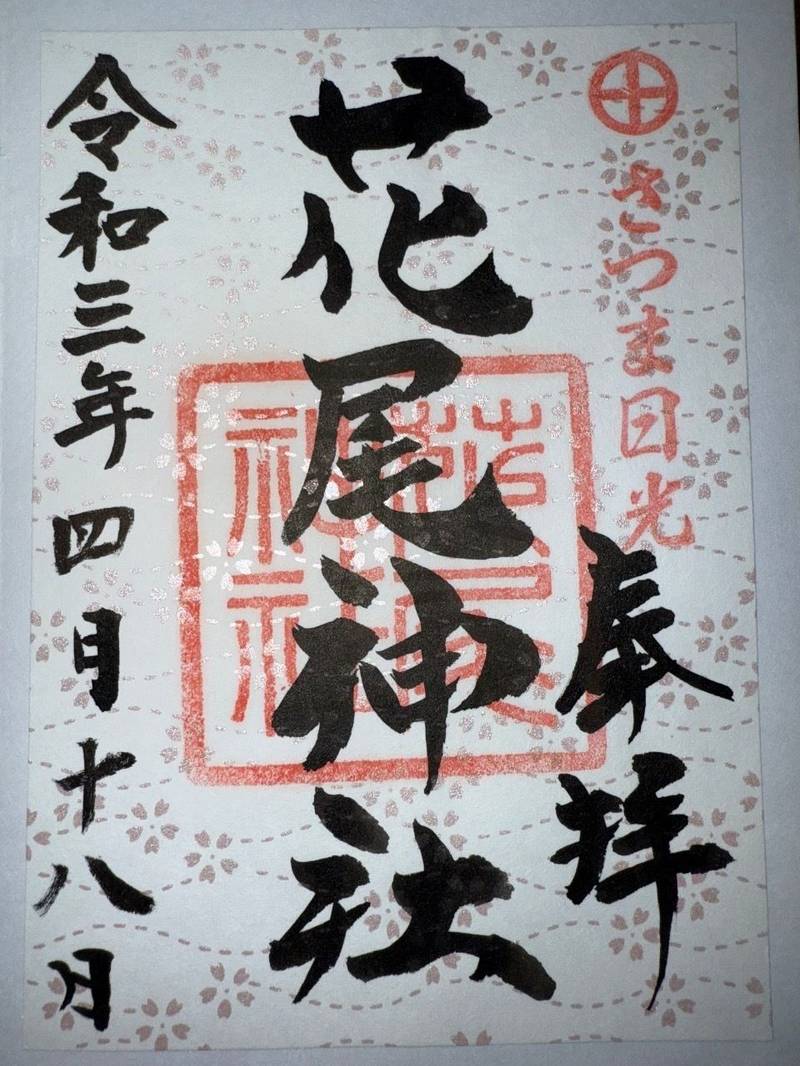 さつま日光
奉拝
花尾神社
花尾神社
令和三年四月十八日